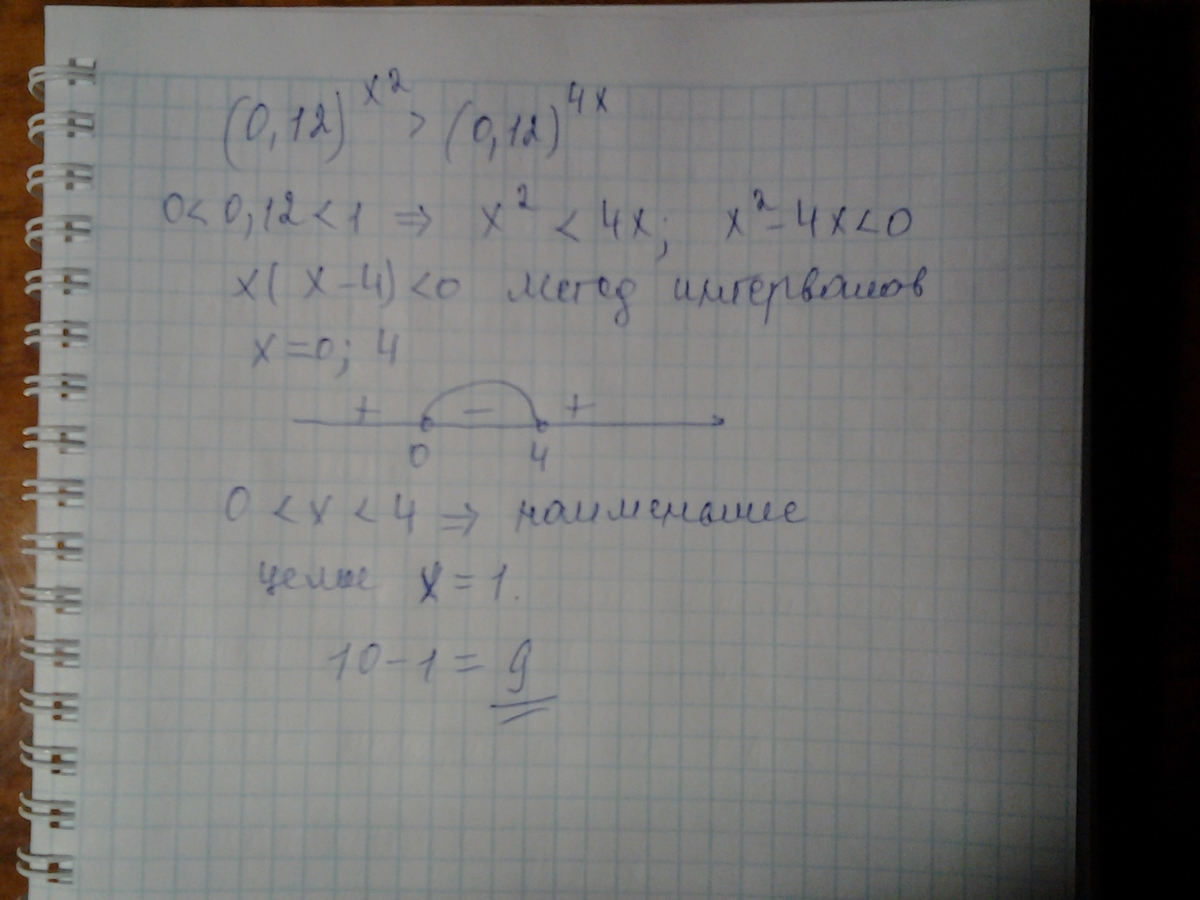 (0,12)^x² > (0,12)^4x
0 < 0,12 < 1 ⇒ x² < 4x; x² - 4x < 0
x(x-4) < 0 метод интервалов
x = 0; 4
+ - +
0 4
0 < x < 4 ⇒ наименьшее
целое x = 1.
10 - 1 = 9